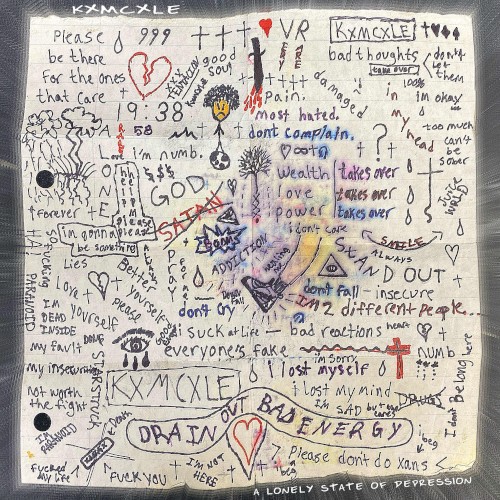 KXMCXLE
Please
999
be there
for the ones
that care
VR
KXMCXLE
bad thoughts
take over
don't
let
them
good
soul
XXX
100%
im okay
in
my
head
19:38
58
pain.
damaged
most hated.
dont complain.
too much
can't
be
sober
Love
i'm numb.
ALONE
$ $ $
GOD
SATAN
wealth takes over
love takes over
power takes over
i don't care
JUICE
WRLD
forever
im gonna
be something
please
please
SMILE
ALWAYS
STAND OUT
PARANOID
lies
Better
yourself
please
Pray
ADDICTION
dont fall - insecure
Love
yourself
IM
DEAD
INSIDE
dont cry
IM 2 different people...
i suck at Life - bad reactions
heart
my fault
everyone's fake
im sorry
numb
my insecurities
STARSTUCK
i lost myself
KXMCXLE
i lost my mind
DRUGS
IM SAD but who
cares
not worth
the fight
I dont Belong here
DRAIN OUT BAD ENERGY
IM
PARANOID
Death
fucked
my life
FUCK YOU
IM NOT
HERE
Please don't do xans
A LONELY STATE OF DEPRESSION